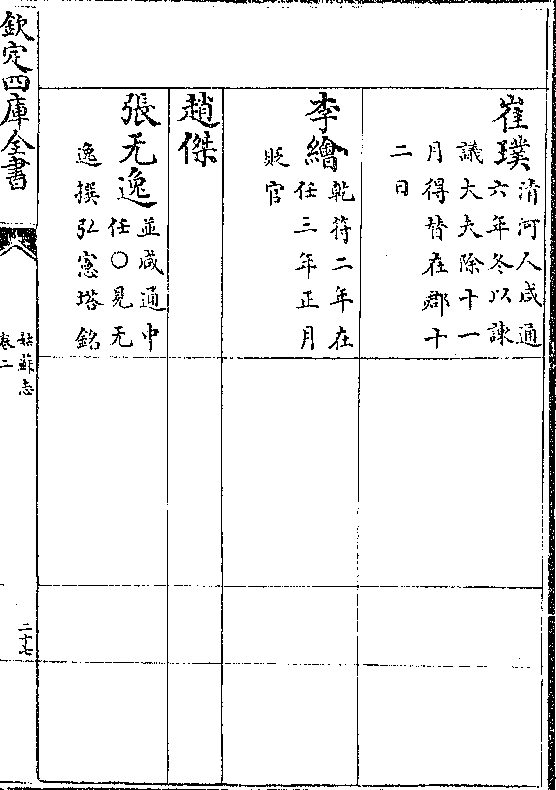 崔璞
清河人咸通
六年冬以諫
議大夫除十一
月得替在郡十
二日
李繪
乾符二年在
任三年正月
貶官
趙傑
張无逸
並咸通中
任○見无
逸撰弘憲塔銘
欽定四庫全書
姑蘇志
卷二
二十七